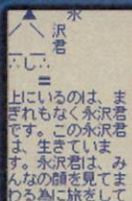 ▲ 永
／＼ 沢
― ― 君
∴し∴
〓
上にいるのは、ま
ぎれもなく永沢君
です。この永沢君
は、生きていま
す。永沢君は、み
んなの顔を見てま
わる為に旅をして